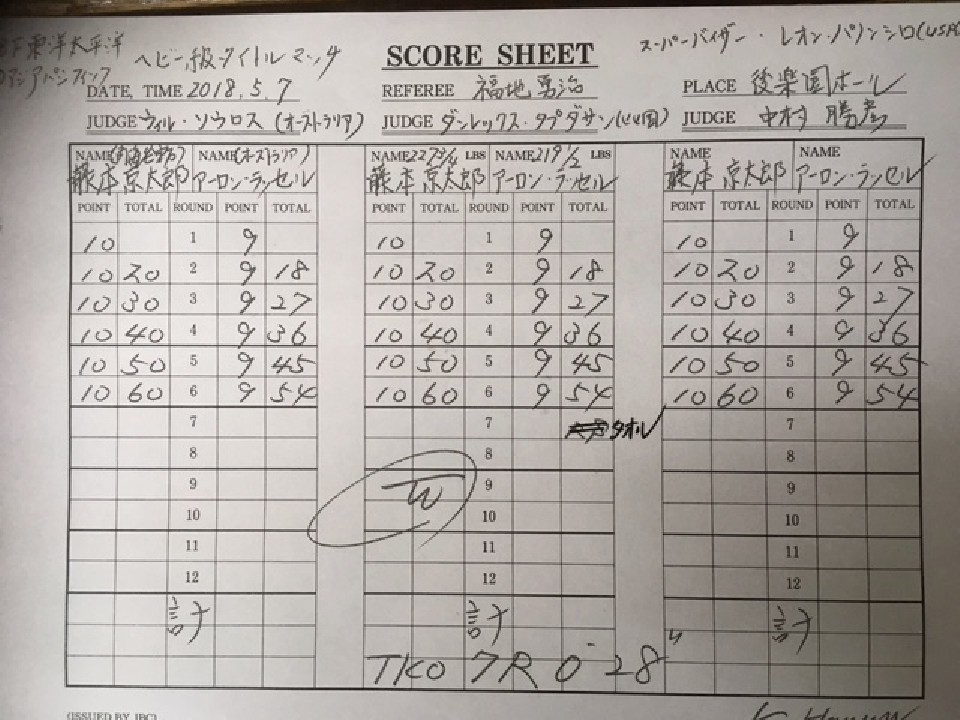 東洋太平洋 ヘビー級タイトルマッチ SCORE SHEET スーパーバイザー・レオン・パノンシロ(USA)
アジアパシフィック
DATE, TIME 2018.5.7 REFEREE 福地勇治 PLACE 後楽園ホール
JUDGE ウィル・ソウロス(オーストラリア) JUDGE ダンレックス・タプダサン JUDGE 中村勝彦
NAME NAME(オーストラリア) NAME 227 3/4 LBS NAME 219 1/2 LBS NAME NAME
藤本京太郎 アーロン・ラッセル 藤本京太郎 アーロン・ラッセル 藤本京太郎 アーロン・ラッセル
POINT TOTAL ROUND POINT TOTAL POINT TOTAL ROUND POINT TOTAL POINT TOTAL ROUND POINT TOTAL
10 1 9 10 1 9 10 1 9
10 20 2 9 18 10 20 2 9 18 10 20 2 9 18
10 30 3 9 27 10 30 3 9 27 10 30 3 9 27
10 40 4 9 36 10 40 4 9 36 10 40 4 9 36
10 50 5 9 45 10 50 5 9 45 10 50 5 9 45
10 60 6 9 54 10 60 6 9 54 10 60 6 9 54
7 7 タオル 7
8 8 8
9 W 9 9
10 10 10
11 11 11
12 12 12
計 計 計
TKO 7R 0-28"
(ISSUED BY JBC)